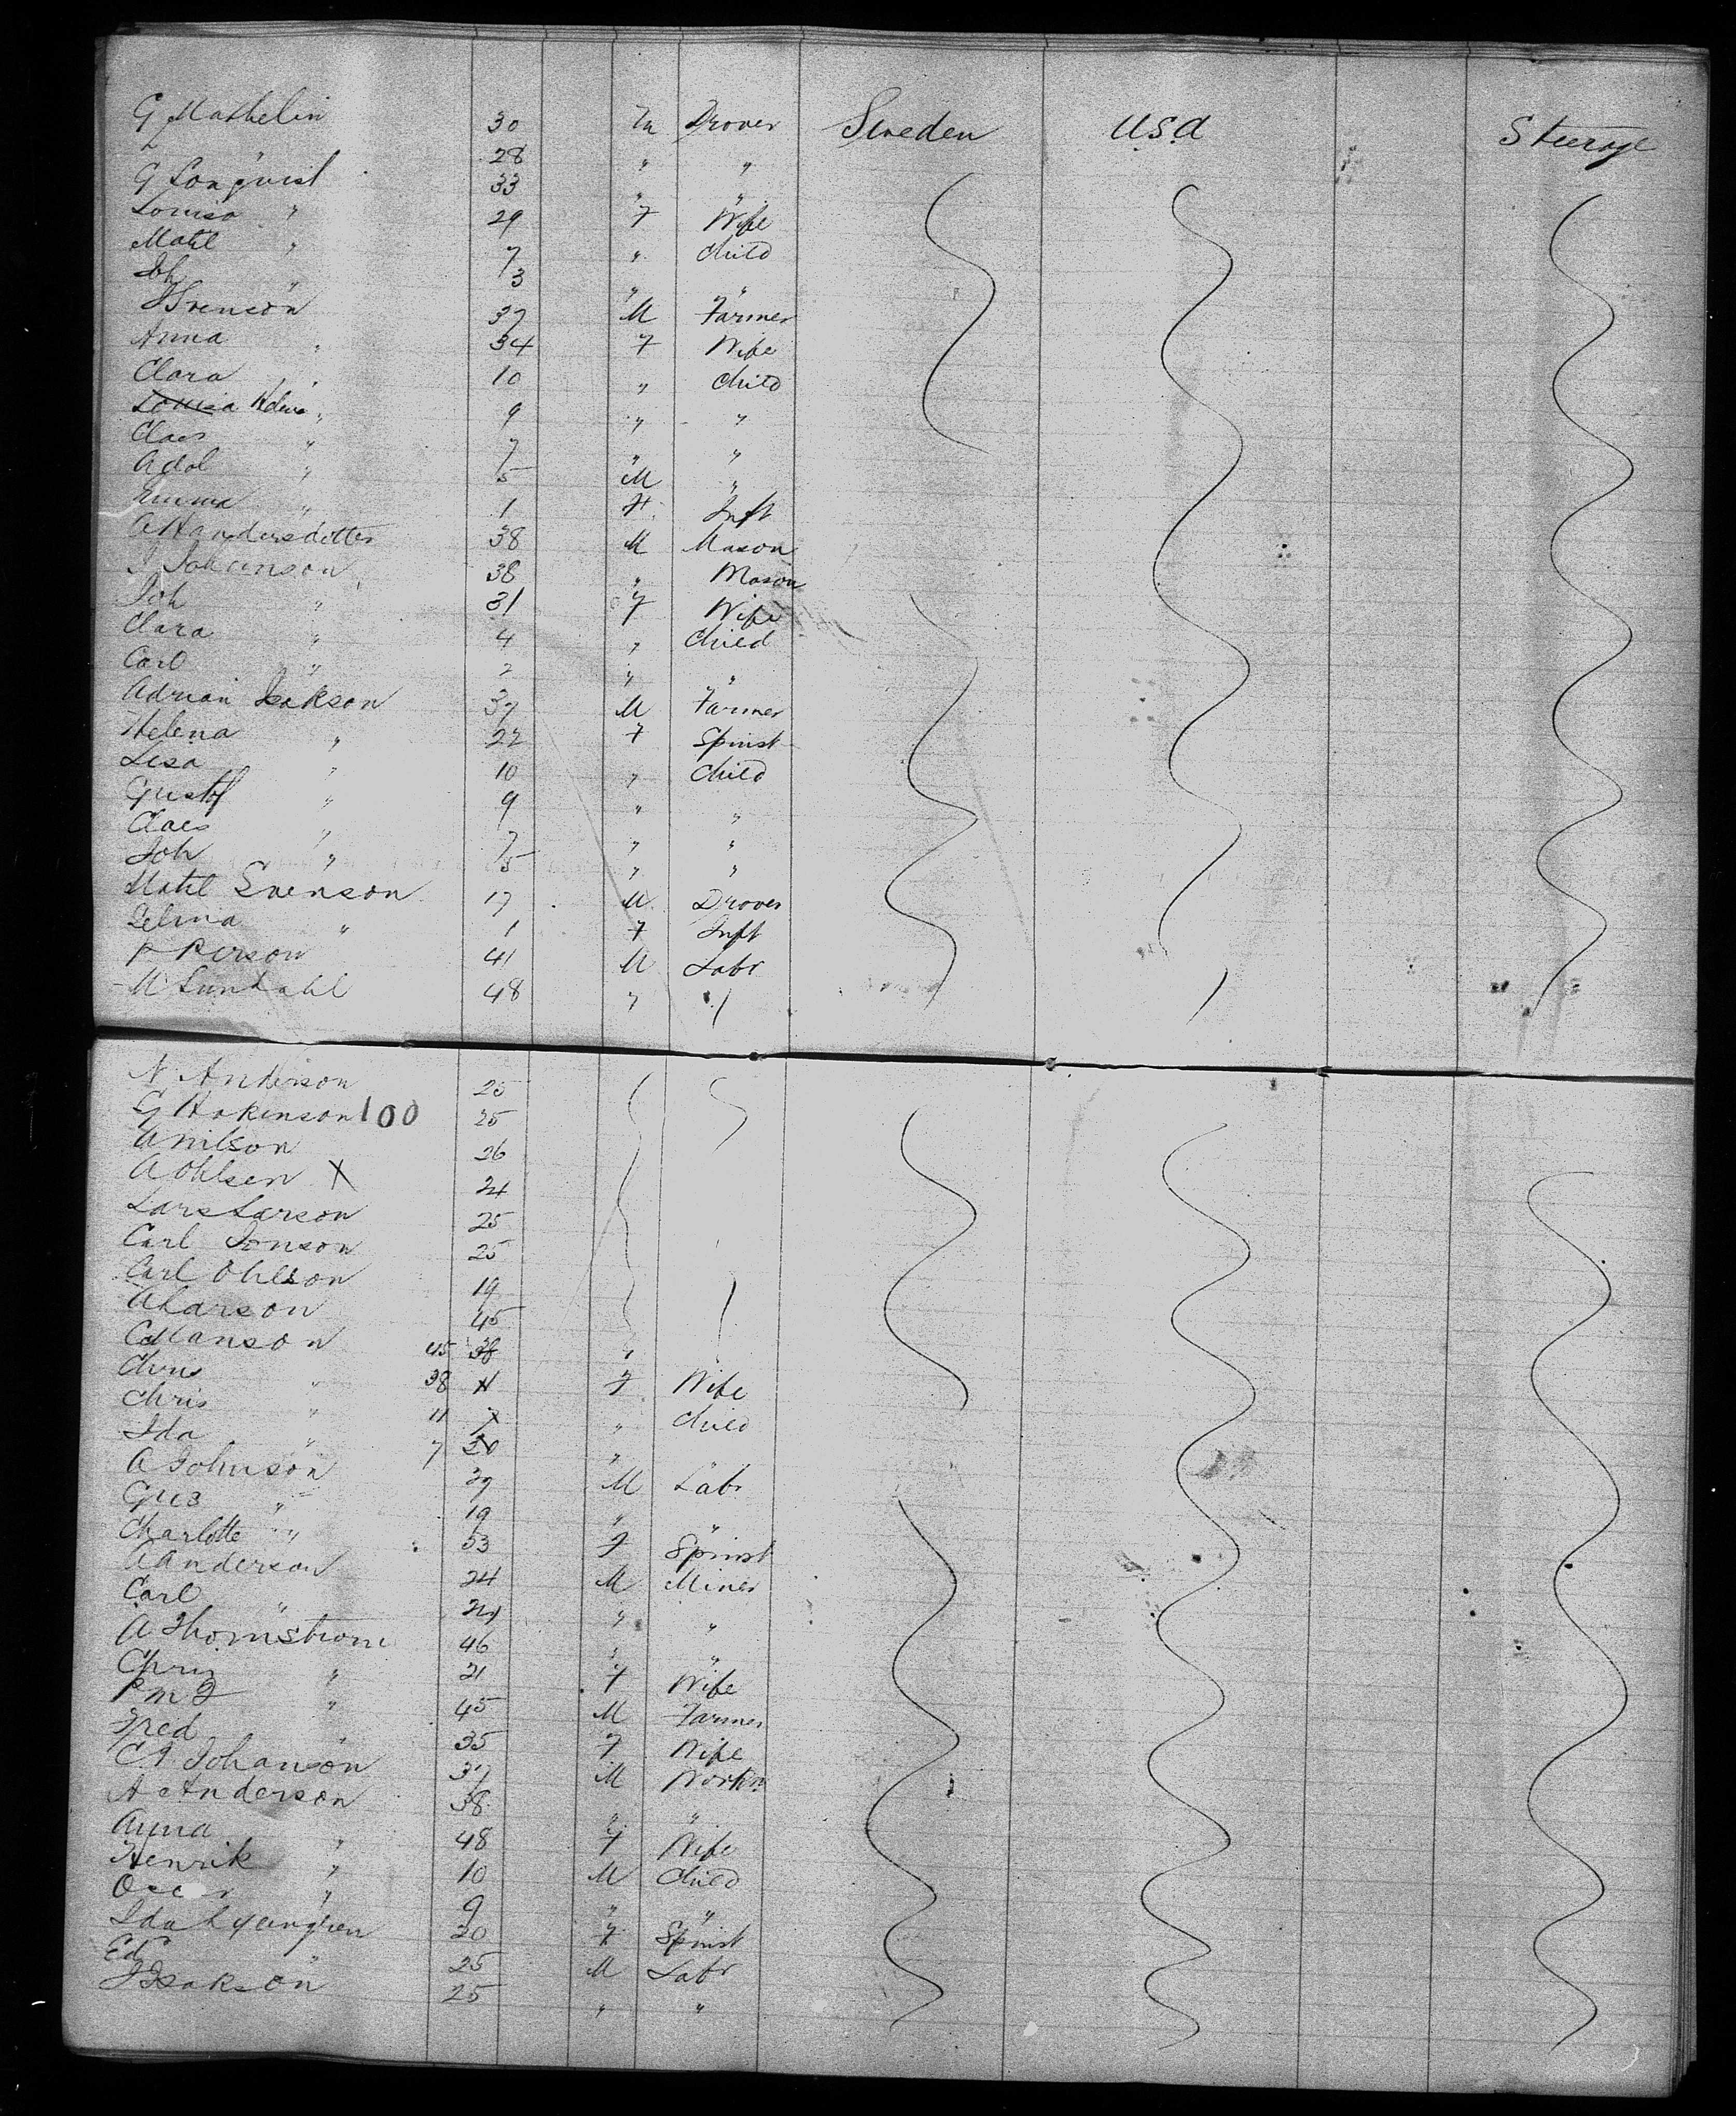 G Mathelin 30 M Drover Sweden U.S.A Steerage
L " 28 " "
G Lonquist 33 " "
Louisa " 29 F Wife
Matil " 7 " Child
Joh " 3 " "
J Svenson 37 M Farmer
Anna " 34 F Wife
Clara " 10 " Child
Louisa Helena " 9 " "
Claes " 7 " "
Adol " 5 M "
Emma " 1 F Inft
A Handersdotter 38 M Mason
J Johanson 38 " Mason
Joh " 31 F Wife
Clara " 4 " Child
Carl " 2 " "
Adrian Isakson 37 M Farmer
Helena " 22 F Spinst
Lisa " 10 " Child
Gustof " 9 " "
Claes " 7 " "
Joh " 5 " "
Matil Svenson 17 M Drover
Selma " 1 F Inft
P Person 41 M Labr
M Lundahl 48 "
N Anderson 25
G Hakinson 100 25
A Nilson 26
A Ohlsen X 24
Lars Larson 25
Carl Jonson 25
Carl Ohlson 19
A Larson 45
C Manson 45 38 "
Chris " 38 11 F Wife
Chris " 11 7 " Child
Ida " 7 30 "
A Johnson 37 M Labr
Gus " 19 " "
Charlotte " 53 F Spinst
A Anderson 24 M Miner
Carl " 24 " "
A Thornstrom 46 " "
Chris " 21 F Wife
P M J " 45 M Farmer
Fred " 35 F Wife
C J Johanson 37 M Workn
A Anderson 38 " "
Anna " 48 F Wife
Henrik " 10 M Child
Oscar " 9 " "
Ida 20 F Spinst
Ed " 25 M Labr
J Isakson 25 " "